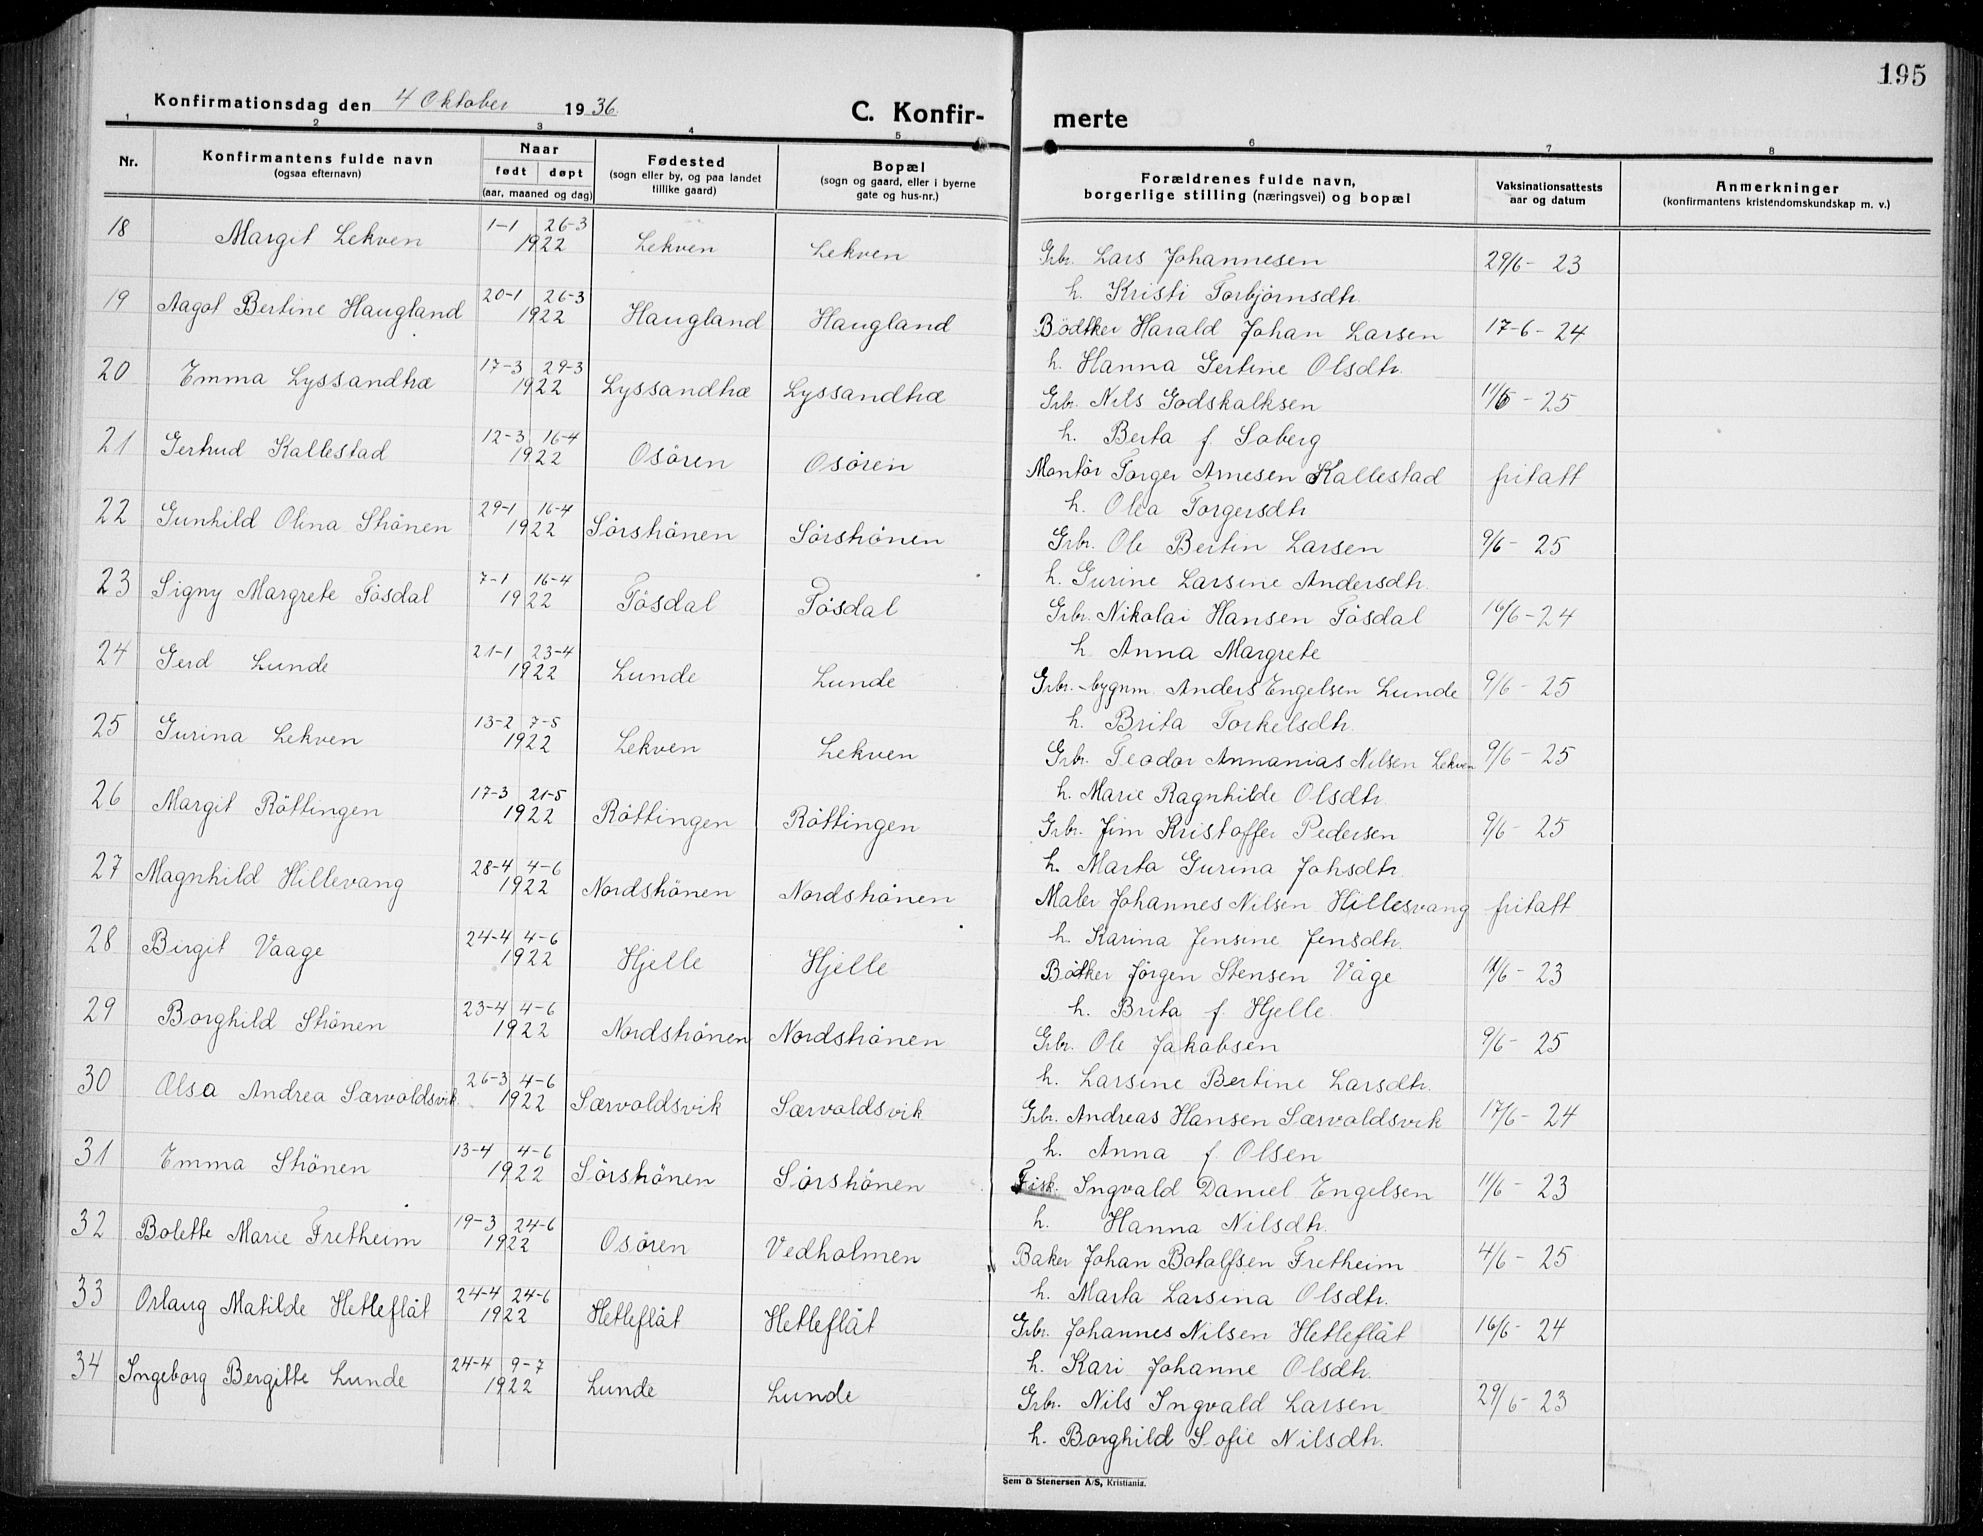 195
Konfirmationsdag den 4 Oktober 1936.
C. Konfir- merte
1 2 3 4 5 6 7 8
Nr.
Konfirmantens fulde navn
(ogsaa efternavn)
Naar
født døpt
(aar, maaned og dag)
Fødested
(sogn eller by, og paa landet
tillike gaard)
Bopæl
(sogn og gaard, eller i byerne
gate og hus-nr.)
Forældrenes fulde navn,
borgerlige stilling (næringsvei) og bopæl
Vaksinationsattests
aar og datum
Anmerkninger
(konfirmantens kristendomskundskap m. v.)
18 Margit Lekven 1-1 26-3 1922 Lekven Lekven Grbr. Lars Johannesen 29/6 - 23
h. Kristi Torbjørnsdtr.
19 Aagot Bertine Haugland 20-1 26-3 1922 Haugland Haugland Bödtker Harald Johan Larsen 17-6-24
h. Hanna Gertine Olsdtr.
20 Emma Lyssandtræ 17-3 29-3 1922 Lyssandtræ Lyssandtræ Grbr. Nils Godskalksen 11/6 - 25
h. Berta f. Søberg
21 Gertrud Kallestad 12-3 16-4 1922 Osören Osören Montör Torger Arnesen Kallestad fritatt
h. Olea Torgersdtr.
22 Gunhild Olina Strönen 29-1 16-4 1922 Sörströnen Sörströnen Grbr. Ole Bertin Larsen 9/6 - 25
h. Gurine Larsine Andersdtr.
23 Signy Margrete Tösdal 7-1 16-4 1922 Tösdal Tösdal Grbr. Nikolai Hansen Tösdal 16/6 - 24
h. Anna Margrete
24 Gerd Lunde 21-1 23-4 1922 Lunde Lunde Grbr. -bygnm. Anders Engelsen Lunde 9/6 - 25
h. Brita Torkelsdtr.
25 Gurina Lekven 13-2 7-5 1922 Lekven Lekven Grbr. Teodor Annanias Nilsen Lekven 9/6 - 25
h. Marie Ragnhilde Olsdtr.
26 Margit Röttingen 17-3 21-5 1922 Röttingen Röttingen Grbr. Jim Kristoffer Pedersen 9/6 - 25
h. Marta Gurina Johsdtr.
27 Magnhild Hillevang 28-4 4-6 1922 Nordströnen Nordströnen Maler Johannes Nilsen Hillesvang fritatt
h. Karina Jensine Jensdtr.
28 Birgit Vaage 24-4 4-6 1922 Hjelle Hjelle Bötker Jörgen Stensen Våge 11/6 - 23
h. Brita f. Hjelle.
29 Borghild Strönen 23-4 4-6 1922 Nordströnen Nordströnen Grbr. Ole Jakobsen 9/6 - 25
h. Larsine Bertine Larsdtr.
30 Olsa Andrea Særvoldsvik 26-3 4-6 1922 Særvoldsvik Særvoldsvik Grbr. Andreas Hansen Særvoldsvik 17/6 - 24
h. Anna f. Olsen
31 Emma Strönen 13-4 4-6 1922 Sörströnen Sörströnen Fisk. Ingvald Daniel Engelsen 11/6 - 23
h. Hanna Nilsdtr.
32 Bolette Marie Fretheim 19-3 24-6 1922 Osören Vedholmen Baker Johan Botolfsen Fretheim 4/6 - 25
h. Marta Larsina Olsdtr.
33 Orlaug Matilde Hetleflåt 24-4 24-6 1922 Hetleflåt Hetleflåt Grbr. Johannes Nilsen Hetleflåt 16/6 - 24
h. Kari Johanne Olsdtr.
34 Ingeborg Bergitte Lunde 24-4 9-7 1922 Lunde Lunde Grbr. Nils Ingvald Larsen 29/6 - 23
h. Borghild Sofie Nilsdtr.
Sem & Stenersen A/S, Kristiania.